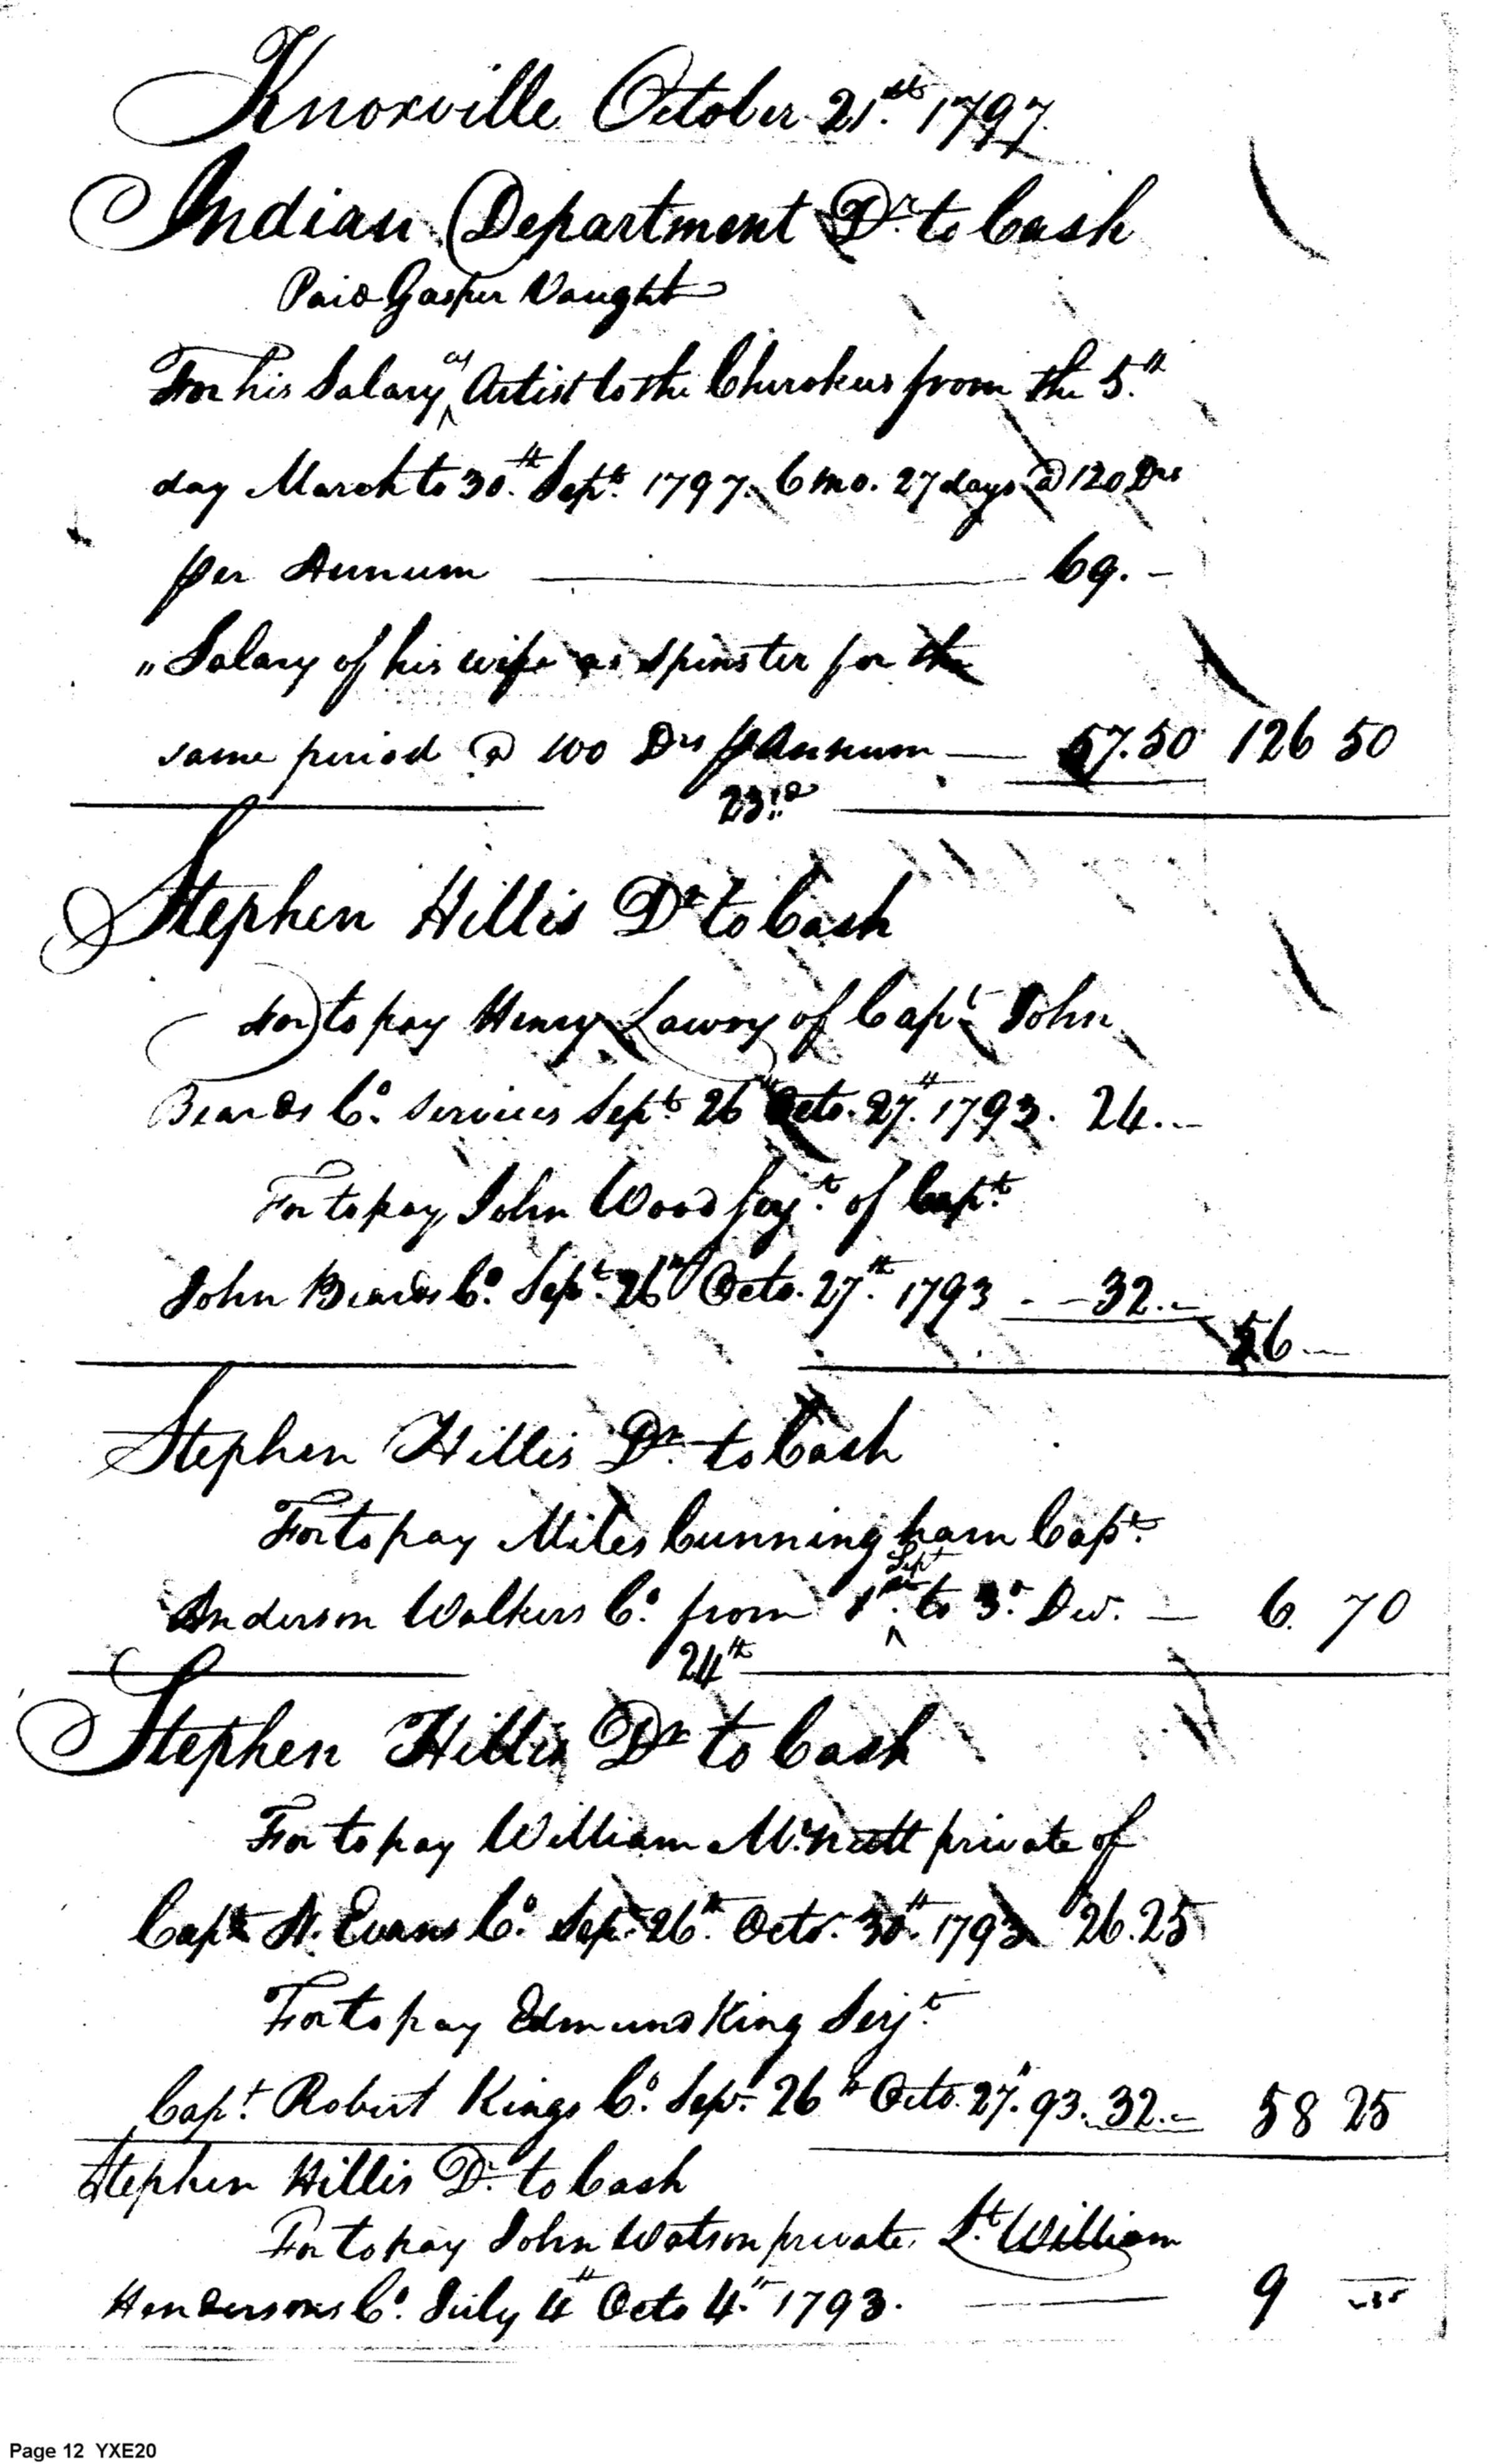 Knoxville October 21st. 1797.
Indian Department Dr. to Cash
Paid Gasper Vaught
For his Salary as Artist to the Cherokees from the 5.th
day March to 30.th Sept. 1797. 6 mo. 27 days @ 120 Drs
per Annum 69. -
" Salary of his wife as Spinster for the
same period @ 100 Drs p Annum - 57.50 126 50
23.d
Stephen Hillis Dr to Cash
For to pay Henry Lawry of Capt. John
Beards Co. services Sept. 26th Octo. 27.th 1793. 24.-
For to pay John Wood Serjt. of Capt.
John Beards Co. Sept. 26th Octo. 27.th 1793 - - 32.-
56 -
Stephen Hillis Dr. to Cash
For to pay Miles Cunningham Capt.
Anderson Walkers Co. from 1st. Sept to 3.d Do. - 6. 70
24th
Stephen Hillis Dr to Cash
For to pay William Mc.nutt private of
Capt. A. Evans Co. Sep. 26.th Octo. 30th. 1793 26.25
For to pay Edmund King Serjt.
Capt. Robert Kings Co. Sep. 26th Octo. 27.th 93. 32.- 58 25
Stephen Hillis Dr. to Cash
For to pay John Watson private, Lt. William
Hendersons Co. July 4th Octo 4.th 1793. 9
Page 12 YXE20